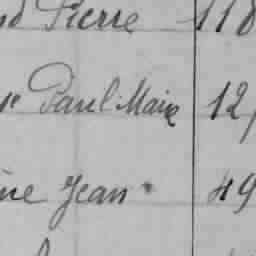 Pierre 118
Paul Marie 12
Jean 49